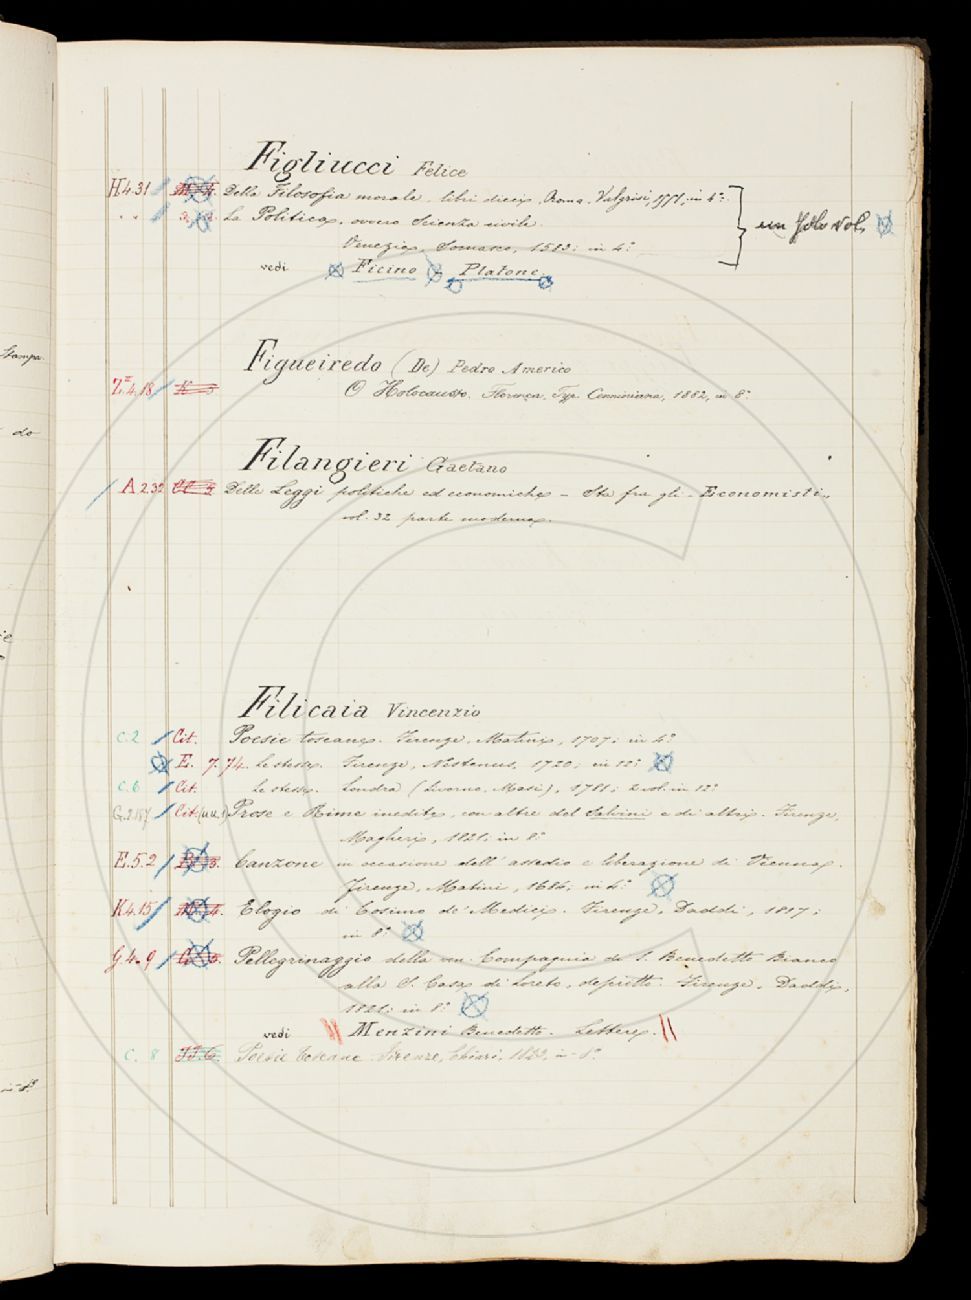 Figliucci Felice
H.4.31 Della Filosofia morale, libri dieci, Roma, Valgrisi, in 4°.
" " La Politica, ovvero Scienza civile.
Venezia, Somasco, 1583; in 4°.
un solo vol.
vedi Ficino - Platone.
Figueiredo (De) Pedro Americo
Z.4.18 O Holocausto. Florença, Typ. Cenniniana, 1882, in 8°.
Filangieri Gaetano
A 2.32 Delle Leggi politiche ed economiche - Sta fra gli - Economisti,,
vol. 32 parte moderna.
Filicaia Vincenzio
C. 2 Cit. Poesie toscane. Firenze, Matini, 1707; in 4°.
E. 7. 74. Le stesse. Firenze, Nestenus, 1720; in 12°.
C. 6 Cit. Le stesse. Londra (Livorno, Masi), 1781; 2 vol. in 12°.
Cit. Prose e Rime inedite, con altre del Salvini e di altri. Firenze,
Magheri, 1821; in 8°.
E.5.2 Canzone in occasione dell' assedio e liberazione di Vienna.
Firenze, Matini, 1684; in 4°.
K4.15 Elogio di Cosimo de' Medici. Firenze, Daddi, 1817;
in 8°.
G.4.9 Pellegrinaggio della ven. Compagnia di S. Benedetto Bianco
alla S. Casa di Loreto, descritto. Firenze, Daddi,
1821; in 8°.
vedi Menzini Benedetto. Lettere.
C. 8 Poesie toscane. Firenze, Chiari, in 8°.
Stampa.
do
in 8°